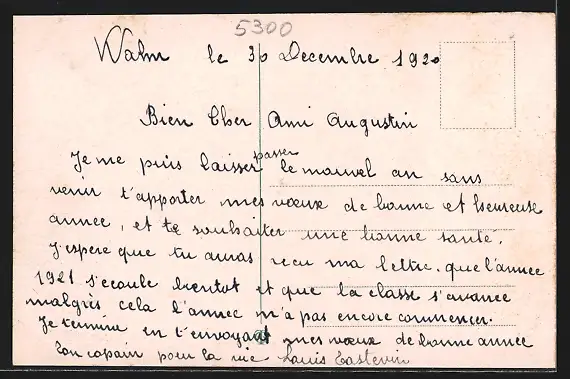 5300
Walm le 30 Decembre 1920
Bien Cher Ami Augustin
passer
Je me puis laisser le nouvel an sans
venir t'apporter mes vœux de bonne et heureuse
année, et te souhaiter une bonne santé.
J'espere que tu auras recu ma lettre. que l'année
1921 s'ecoule bientot et que la classe s'avance
malgrès cela l'année m'a pas encore commencer.
Je termine en t'envoyant mes vœux de bonne année
Ton copain pour la vie Louis